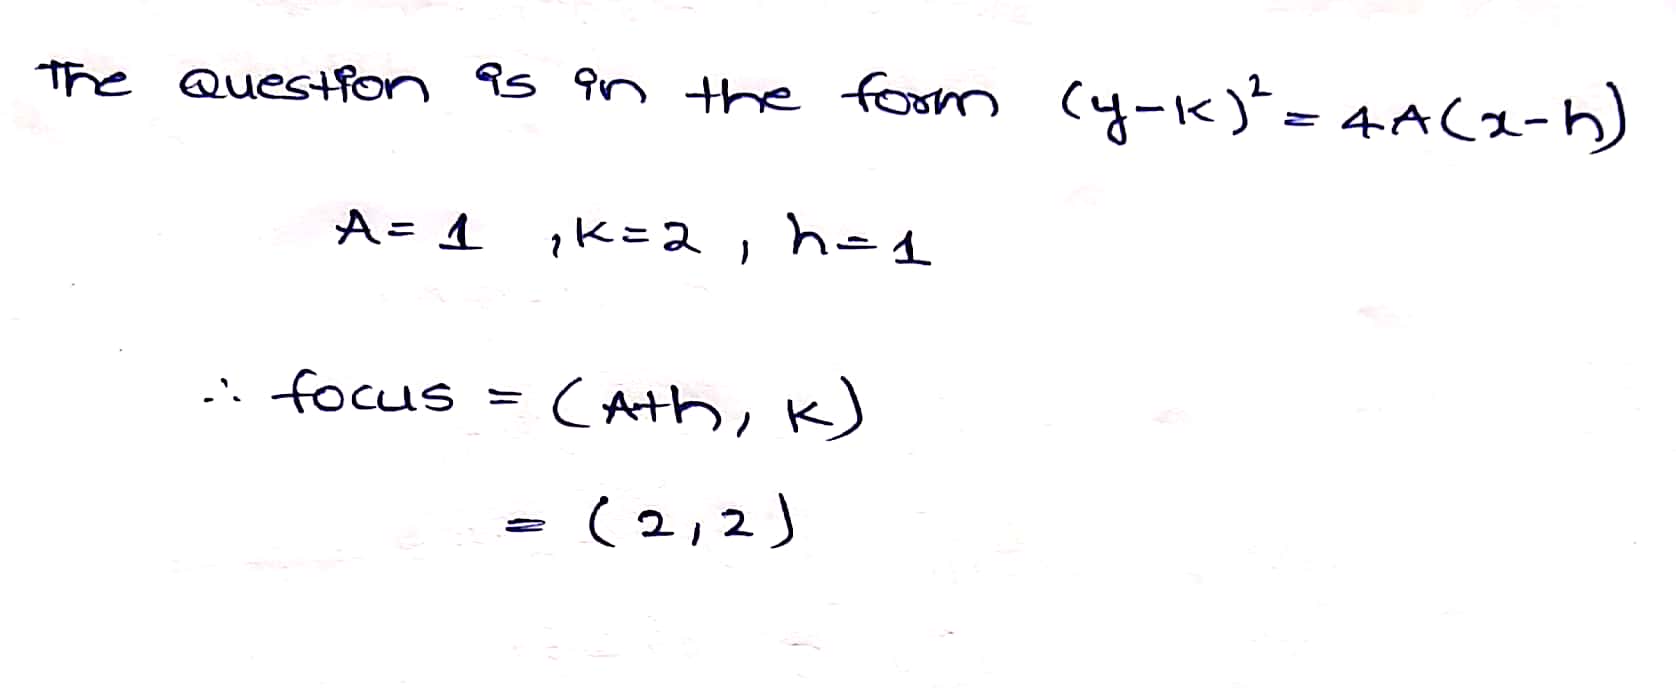 The Question is in the form (y-k)² = 4A(x-h)
A = 1 , k = 2 , h = 1
∴ focus = (A+h, k)
= (2,2)